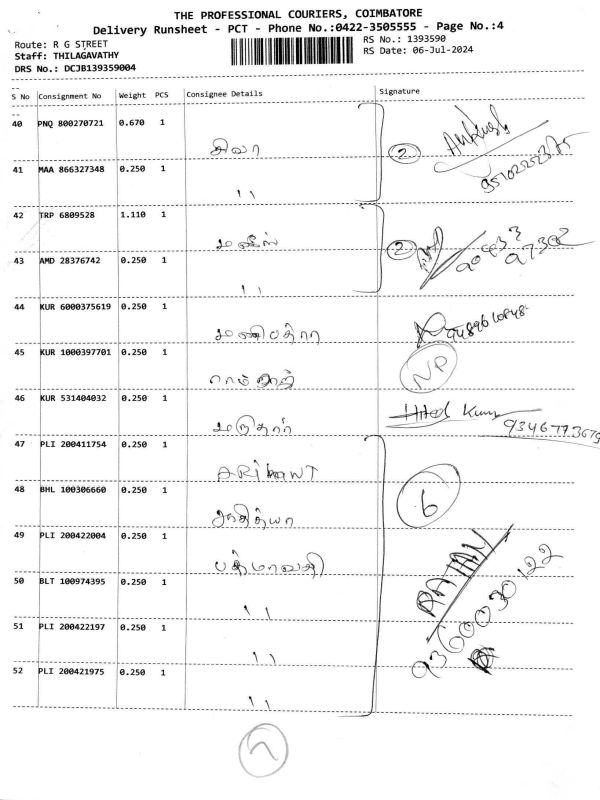 THE PROFESSIONAL COURIERS, COIMBATORE
Delivery Runsheet - PCT - Phone No.:0422-3505555 - Page No.:4
Route: R G STREET
RS No.: 1393590
Staff: THILAGAVATHY
RS Date: 06-Jul-2024
DRS No.: DCJB139359004
S No Consignment No Weight PCS Consignee Details Signature
40 PNQ 800270721 0.670 1
சிவா
2
41 MAA 866327348 0.250 1
11
42 TRP 6809528 1.110 1
2
90433
97392
43 AMD 28376742 0.250 1
11
44 KUR 6000375619 0.250 1
45 KUR 1000397701 0.250 1
ராம்ராஜ்
NP
46 KUR 531404032 0.250 1
Kumar
47 PLI 200411754 0.250 1
ARIHANT
48 BHL 100306660 0.250 1
ஆதித்யா
6
49 PLI 200422004 0.250 1
பத்மாவதி
RATAN
9360030122
50 BLT 100974395 0.250 1
11
51 PLI 200422197 0.250 1
11
52 PLI 200421975 0.250 1
11
7